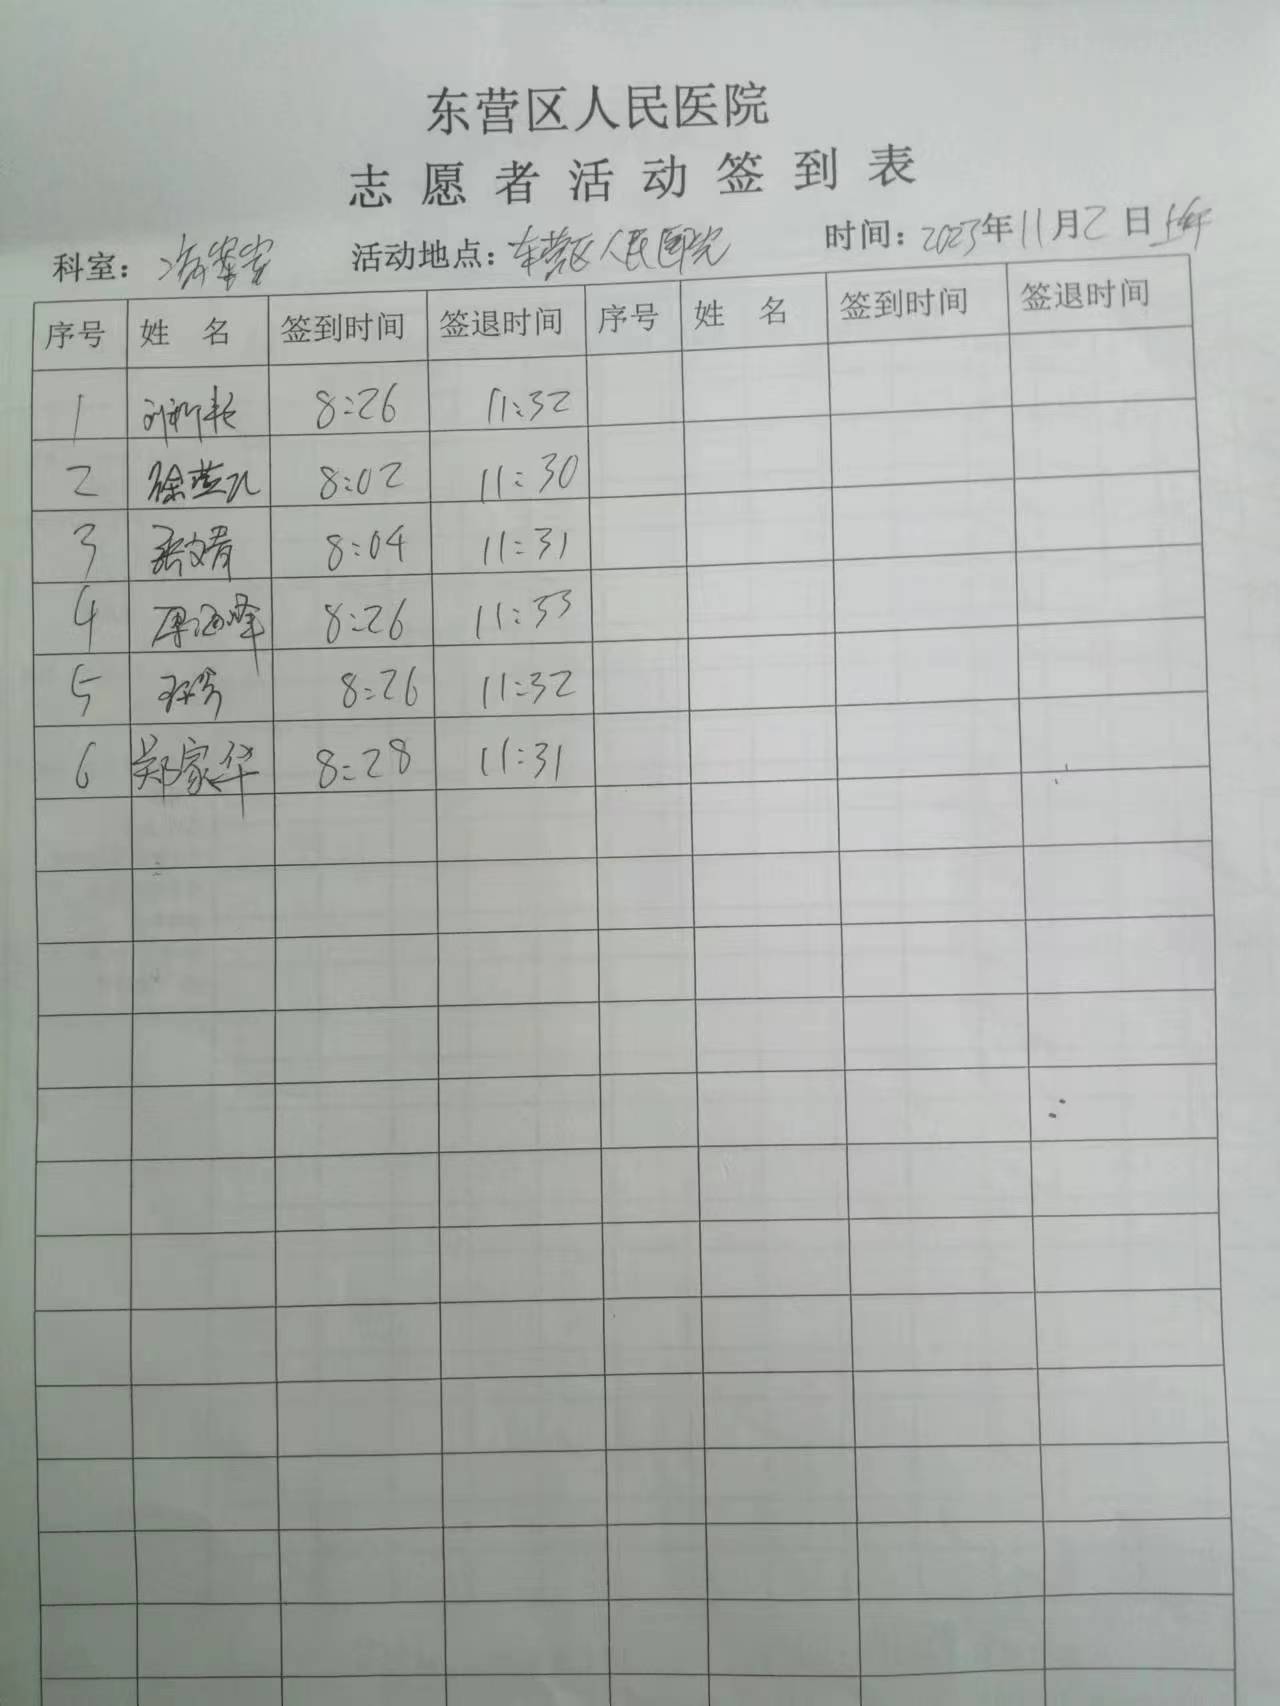 东营区人民医院
志愿者活动签到表
科室：病案室 活动地点：东营区人民医院 时间：2023年11月2日上午
序号 姓名 签到时间 签退时间 序号 姓名 签到时间 签退时间
1 8:26 11:32
2 徐燕 8:02 11:30
3 张文青 8:04 11:31
4 海峰 8:26 11:33
5 8:26 11:32
6 郑家华 8:28 11:31